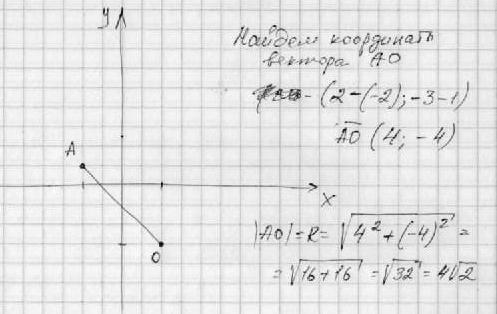 Найдем координаты
вектора АО
- (2-(-2); -3-1)
AO (4; -4)
|AO| = R = √4² + (-4)² =
= √16 + 16 = √32 = 4√2
y
A
x
O